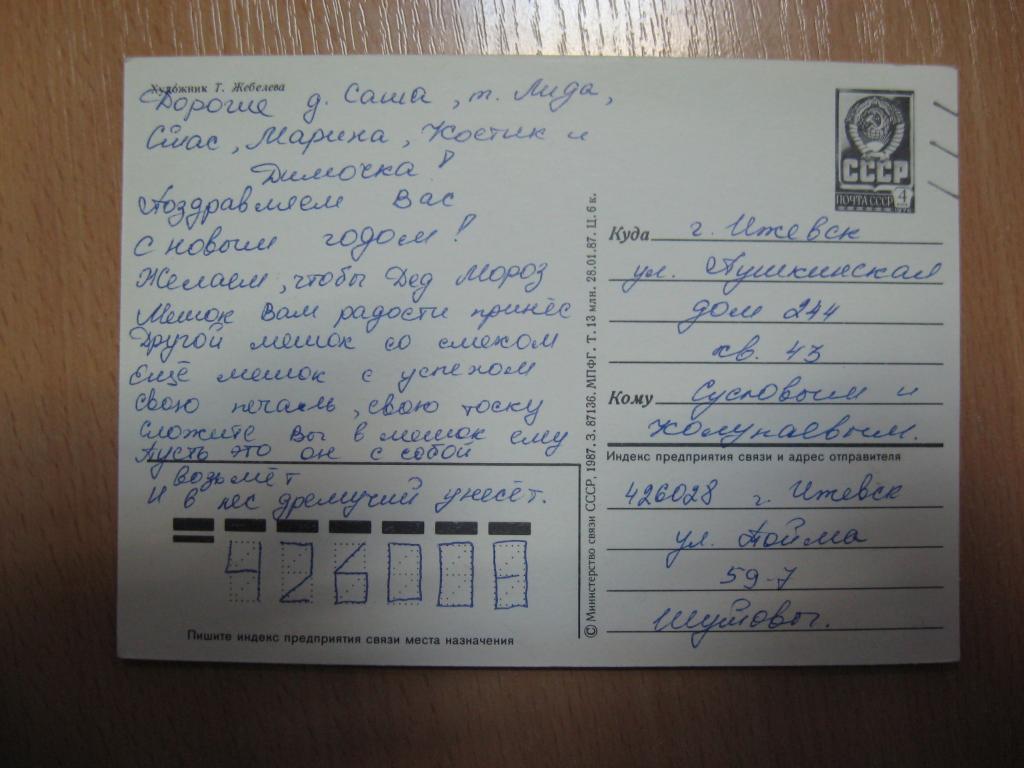 Художник Т. Жебелева
Дорогие д. Саша, т. Лида,
Стас, Марина, Костик и
Димочка!
Поздравляем Вас
С новым годом!
Желаем, чтобы Дед Мороз
Мешок Вам радости принёс
Другой мешок со смехом
Ещё мешок с успехом
Свою печаль, свою тоску
Сложите Вы в мешок ему
Пусть это он с собой
возьмёт
И в лес дремучий унесёт.
426008
Пишите индекс предприятия связи места назначения
© Министерство связи СССР, 1987. З. 87136. МПФГ. Т. 13 млн. 28.01.87. Ц. 6 к.
СССР
ПОЧТА СССР 4
Куда г. Ижевск
ул. Пушкинская
дом 244
кв. 43
Кому Сусловым и
Колупаевым.
Индекс предприятия связи и адрес отправителя
426028 г. Ижевск
ул. Пойма
59-7
Шутовы.